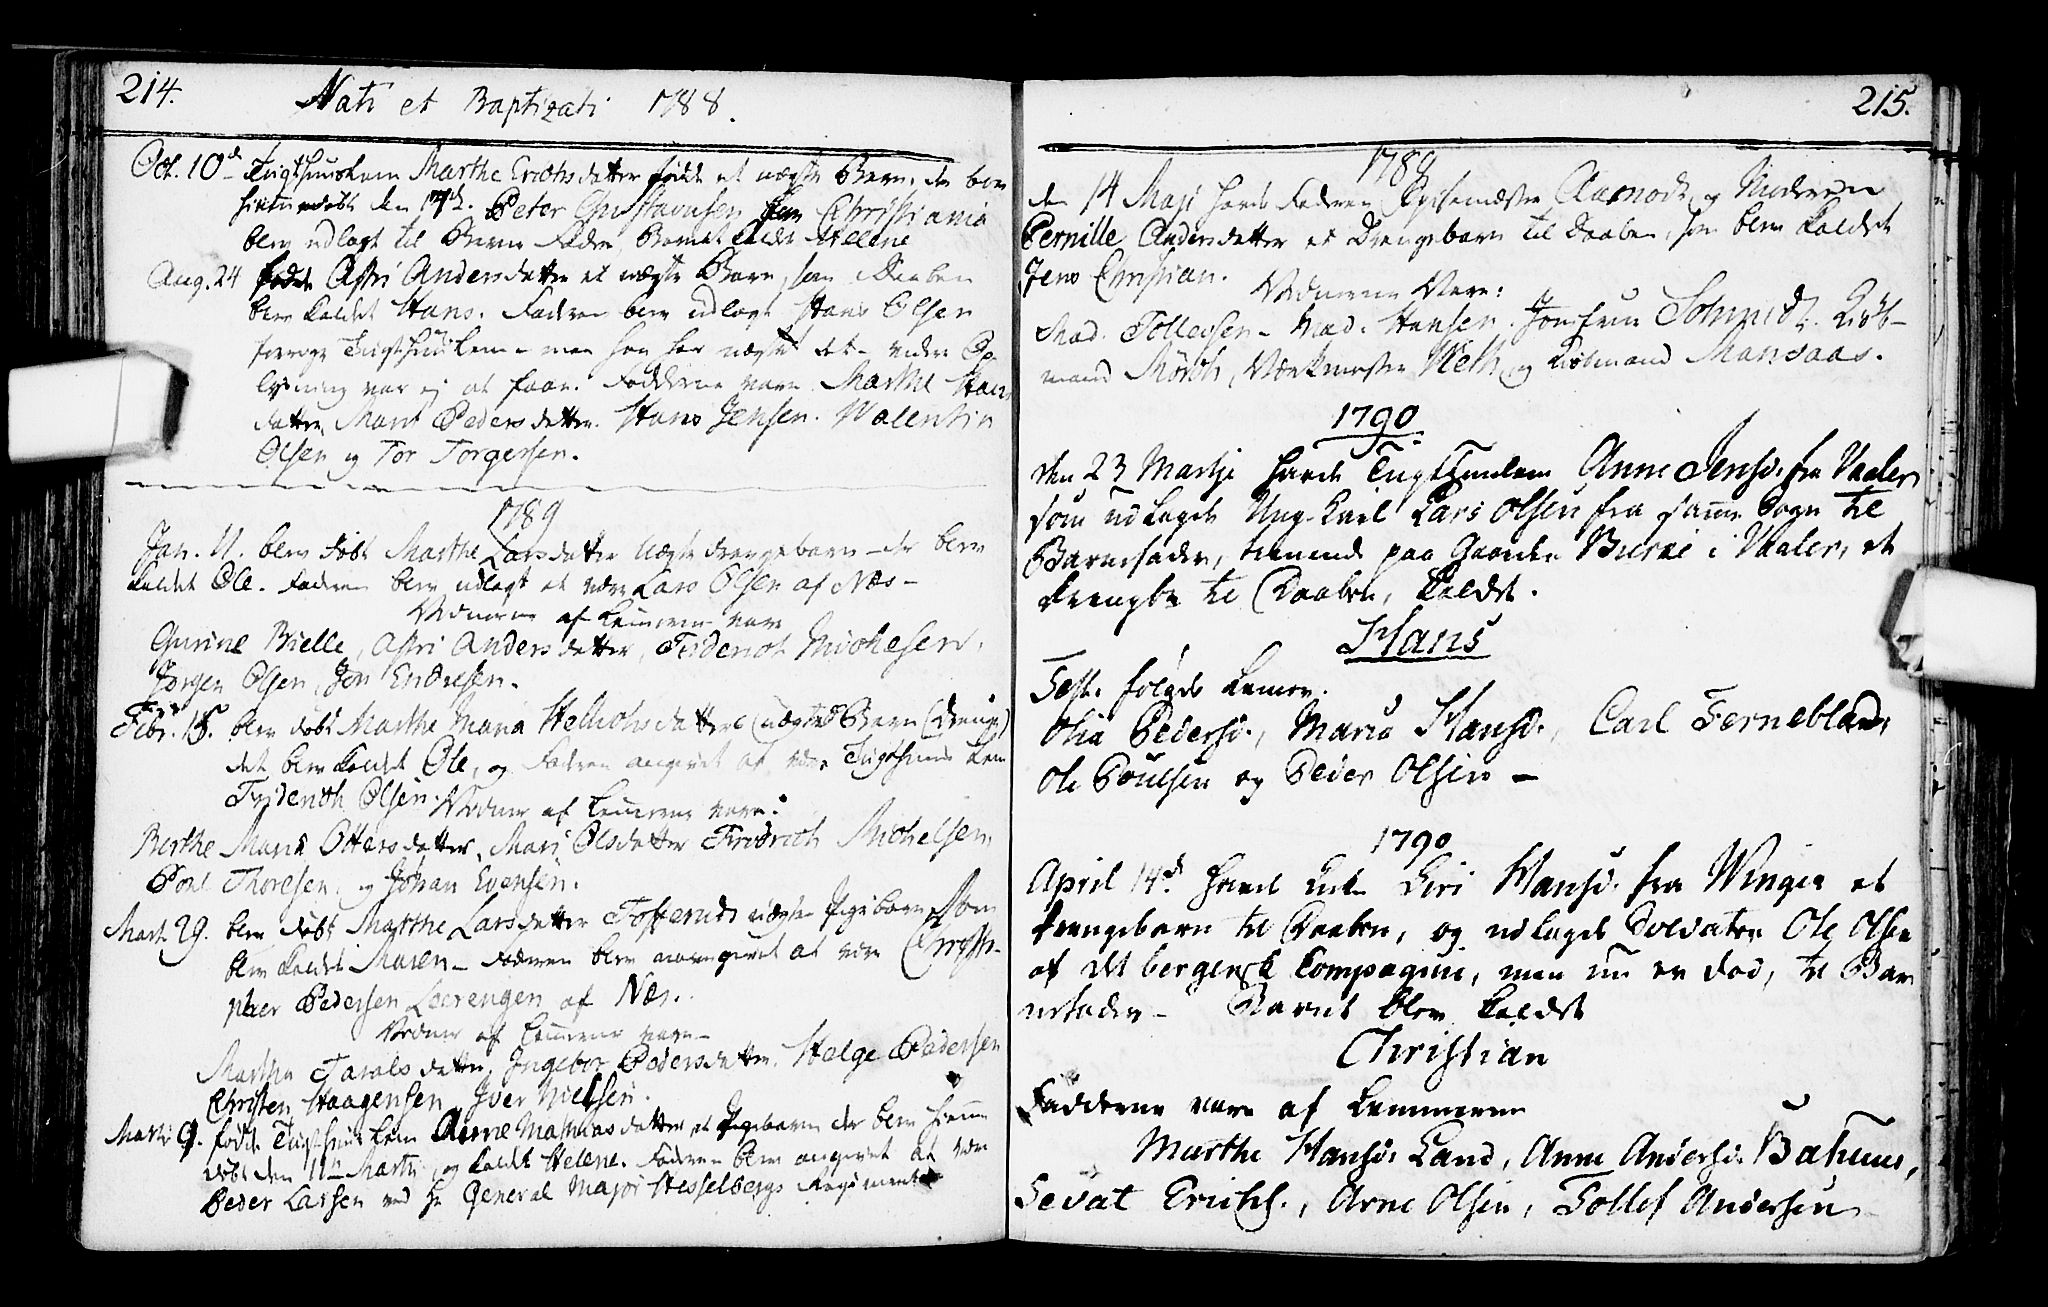 214.
Nati et Baptizati 1788.
Oct. 10de Tugthuuslem Marthe Erichsdatter fødde et uægte Barn, der blev
hiemmedøbt den 17de. Peter Gustavusen fra Christiania
blev udlagt til Barne Fader Barnet kaldt Helene
Aug. 24 fødde Astri Andersdatter et uægte Barn, som i Daaben
blev kaldet Hans. Faderen blev udlagt Hans Olsen
forrige Tugthuuslem - men han har nægtet det - videre Op
lysning var ej at faae. Fadderne vare Marthe Hans
datter, Marit Pedersdatter. Hans Jensen. Valentin
Olsen og Tor Torgersen.
1789
Jan. 11. blev døbt Marthe Larsdatter uægte drengebarn - der blev
kaldet Ole. Faderen blev udlagt at være Lars Olsen af Næs -
Vidnerne af Lemmerne vare
Gurine Bielle, Astri Andersdatter, Friderich Michelsen,
Jørgen Olsen, Jon Endresen.
Febr. 15. blev døbt Marthe Maria Helliohsdatters uægte Barn (Dreng)
det blev kaldet Ole, og Faderen angivet at være Tugthuus Lem
Friderich Olsen. Vidner af Lemmerne vare:
Berthe Maria Ottersdatter, Mari Olsdatter Fredrich Michelsen,
Poul Thoresen, og Johan Evensen.
Mart. 29. blev døbt Marthe Larsdatter Tofteruds uægte Pigebarn som
blev kaldet Maren - Faderen blev angivet at være Christo-
pher Pedersen Leerengen af Næs.
Vidner af Lemmerne vare -
Marthe Taralsdatter, Ingebor Pedersdatter, Helge Pedersen
Christen Haagensen Iver Nielsen.
Marti 9. fødde Tugthuus Lem Anne Mathiasdatter et Pigebarn der blev hiemme
døbt den 11te Marti, og kaldt Helene. Faderen blev angivet at være
Peder Larsen ved Hr General Major Hesselbergs Regiment
215.
1789
den 14 Maji havde Faderen Spisemester Aamodt og Moderen
Pernille Andersdatter et Drengebarn til Daaben, som blev kaldet
Jens Christian.
Vidnerne Vare:
Mad. Tollefsen - Mad. Hansen. Jomfrue Schmidt. Kiøb-
mand Mørch, Værkmester Weth, og Kiøbmand Monsaas.
1790
den 23 Martji havde Tugtlemlem Anne Jensd. fra Vaaler
som udlagde Ung-Karl Lars Olsen fra samme Sogn til
Barnefader, tienende paa Gaarden Bierke i Vaaler, et
Drengebn til Daaben, kaldet.
Hans
Test. følgde Lemer.
Olia Pedersd., Maria Hansd., Carl Ferneblad,
Ole Poulsen og Peder Olsen -
1790
April 14d. havde Lem Siri Hansd. fra Winger et
Drengebarn til Daaben, og udlagde Soldaten Ole Olsen
af det bergenske Compagnie, men nu er død, til Bar
nefader - Barnet blev kaldet
Christian
Fadderne vare af Lemmerne
Marthe Hansd. Land, Anne Andersd. Bakunn,
Sevat Erichs., Arne Olsen, Tollef Andersen